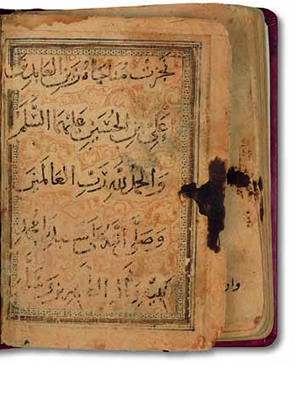 نجزت مناجاة زين العابدين
علي بن الحسين عليه السلم
والحمد لله رب العالمين
وصلى الله على سيدنا محمد
الطاهرين وسلم